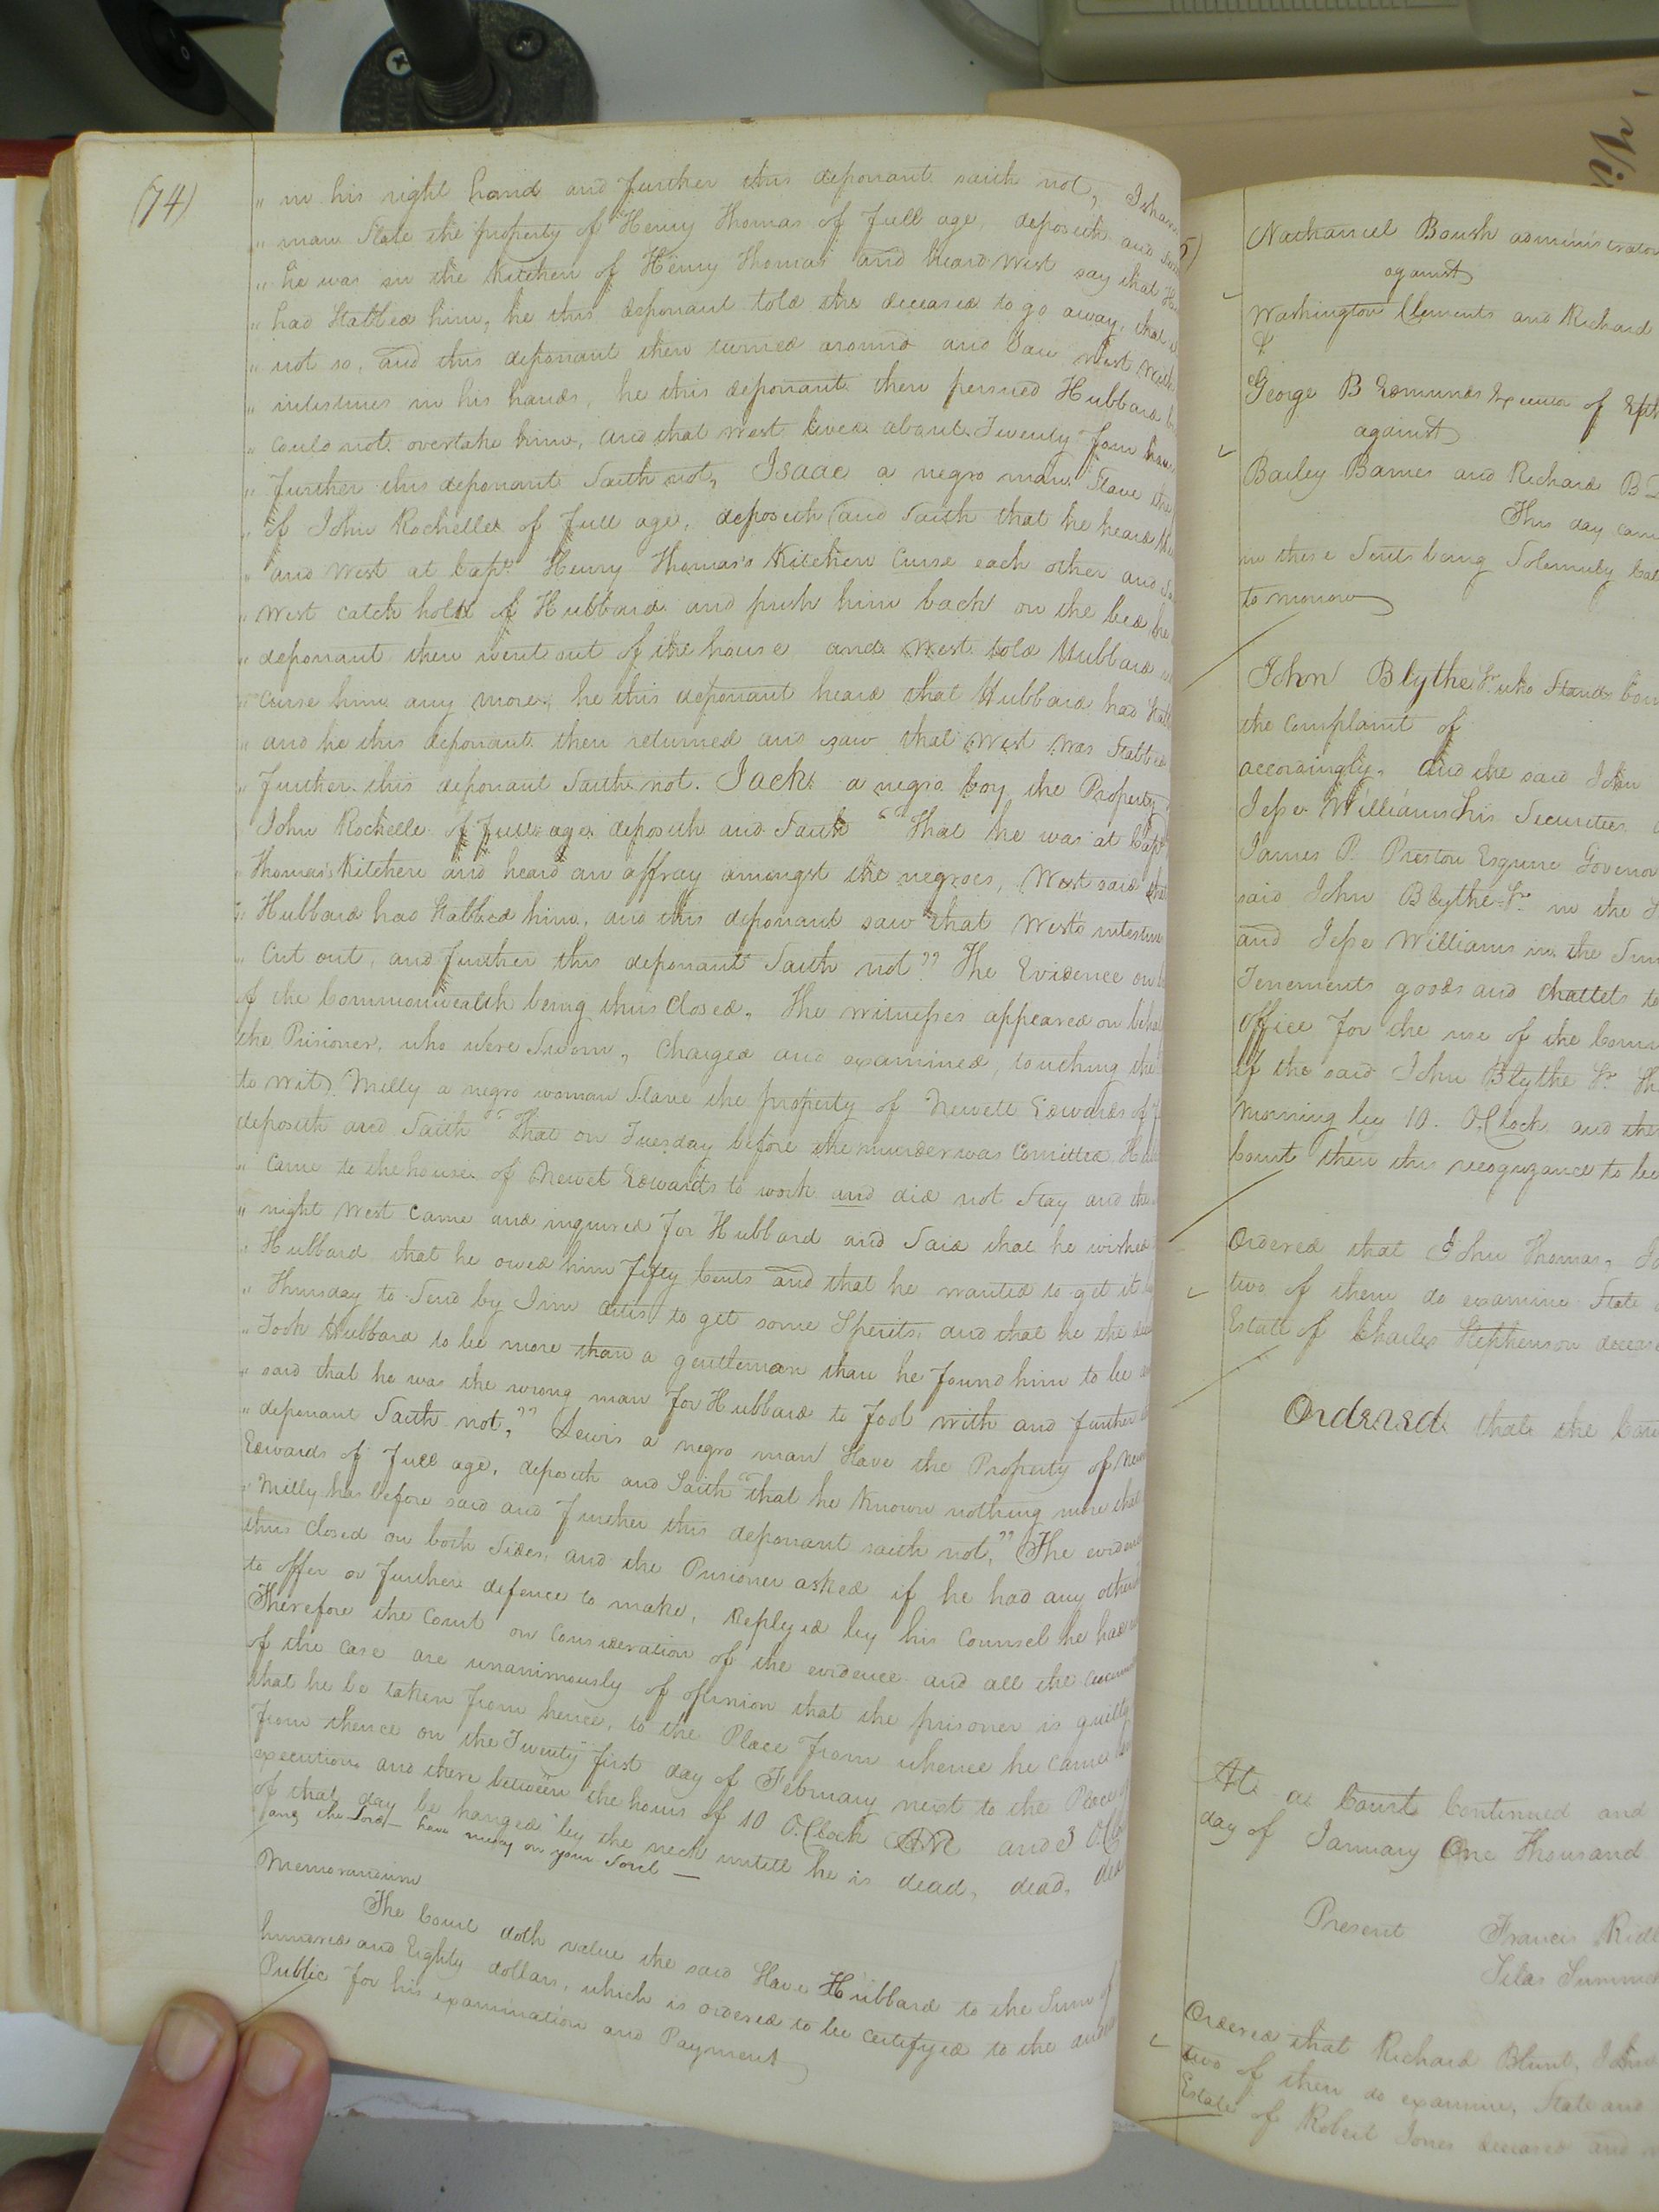 (74)
" in his right hand and further this deponant saith not,
" man Slave the property of Henry Thomas of full age, deposeth and
" he was in the Kitchen of Henry Thomas and heard West say that
" had Stabbed him, he this deponant told the deceased to go away, that
" not so, and this deponant then turned around and Saw West with
" intestines in his hands, he this deponant then persued Hubbard
" could not overtake him, and that West lived about Twenty four
" further this deponant Saith not, Isaac a negro man Slave the
" of John Rochelle of full age, deposeth and Saith that he heard
" and West at Capt. Henry Thomas's Kitchen Curse each other and
" West catch hold of Hubbard and push him back on the bed he
" deponant then went out of the house and West told Hubbard
" Curse him any more, he this deponant heard that Hubbard had
" and he this deponant then returned and saw that West was Stabbed
" further this deponant Saith not. Jack a negro boy the Property
John Rochelle of full age deposeth and Saith "That he was at Capt
" Thomas's Kitchen and heard an affray amongst the negroes, West said that
" Hubbard had Stabbed him, and this deponant saw that West's
" Cut out, and further this deponant Saith not" The Evidence on
of the Commonwealth being thus Closed, The witnesses appeared on
the Prisoner, who were Sworn, Charged and examined, touching the
to wit, Milly a negro woman Slave the property of Newett Edwards of
deposeth and Saith "That on Tuesday before the murder was Comitted
" Came to the house of Newet Edwards to work and did not Stay and
" night West Came and inquired for Hubbard and Said that he wished
" Hubbard that he owed him fifty Cents and that he wanted to get it
" Thursday to Send by Jim to get some Sperits, and that he the
" Took Hubbard to be more than a gentleman than he found him to be
" said that he was the wrong man for Hubbard to fool with and further
" deponant Saith not," Lewis a negro man Slave the Property of
Edwards of full age, deposeth and Saith "that he known nothing more than
" Milly has before said and further this deponant saith not," The
thus Closed on both Sides, and the Prisoner asked if he had any other
to offer or further defence to make, Replyed by his Counsel he had
Therefore the Court on Consideration of the evidence and all the
of the Case are unanimously of opinion that the prisoner is guilty
that he be taken from hence, to the Place from whence he came
from thence on the Twenty first day of February next to the Place of
execution and there between the hours of 10 O.Clock AM and 3
of that day be hanged by the neck untill he is dead, dead,
and the Lord have mercy on your Soul —
Memorandum
The Court doth value the said Slave Hubbard to the Sum of
hundred and Eighty dollars, which is ordered to be Certifyed to the
Public for his examination and Payment
Nathaniel Boush administrator
against
Washington Clements and Richard
&
George B Edmunds Executor of
against
Bailey Barnes and Richard B
This day came
in these Suits being Solemnly
to morrow
John Blythe Sr. who Stands
the Complaint of
accordingly, And the said John
Jesse Williams his Securities
James P. Preston Esquire Govenor
said John Blythe Sr. in the
and Jesse Williams in the
Tenements goods and chattels to
office for the use of the
if the said John Blythe Sr.
morning by 10. O.Clock and
Court then this recognizance to be
Ordered that John Thomas,
two of them do examine State
Estate of Charles Stephenson
Ordered that the
At a Court Continued and
day of January One Thousand
Present Francis
Silas
Ordered that Richard Blunt, John
two of them do examine, State and
Estate of Robert Jones deceased and